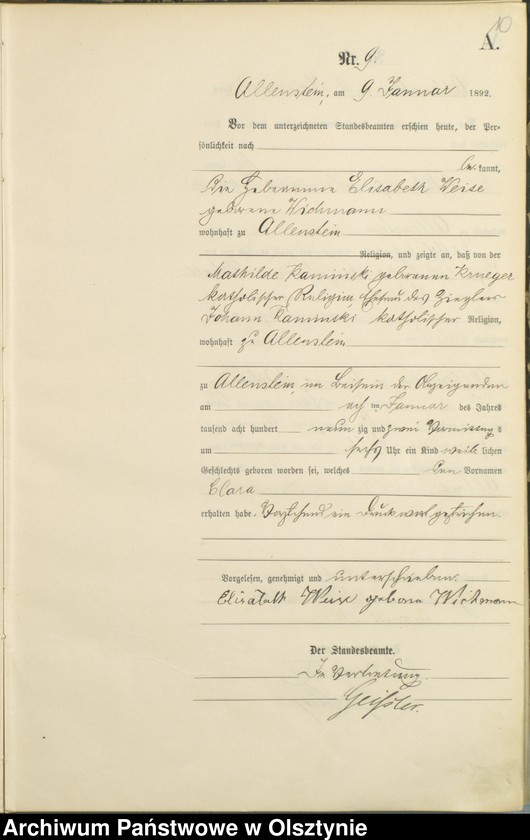 10
A.
Nr. 9.
Allenstein, am 9. Januar 1892.
Vor dem unterzeichneten Standesbeamten erschien heute, der Per-
sönlichkeit nach
be kannt,
die Hebeamme Elisabeth Weise
geborene Wichmann
wohnhaft zu Allenstein
Religion, und zeigte an, daß von der
Mathilde Kaminski geborenen Krueger
katholischer Religion Ehefrau des Zieglers
Johann Kaminski katholischer Religion,
wohnhaft zu Allenstein
zu Allenstein, im Beisein der Anzeigenden
am acht ten Januar des Jahres
tausend acht hundert neun zig und zwei Vormittags
um sechs Uhr ein Kind weib lichen
Geschlechts geboren worden sei, welches den Vornamen
Clara
erhalten habe. Vorstehend ein Druckwort gestrichen.
Vorgelesen, genehmigt und unterschrieben.
Elisabeth Weise geborne Wichmann
Der Standesbeamte.
In Vertretung
Geißler.
Archiwum Państwowe w Olsztynie